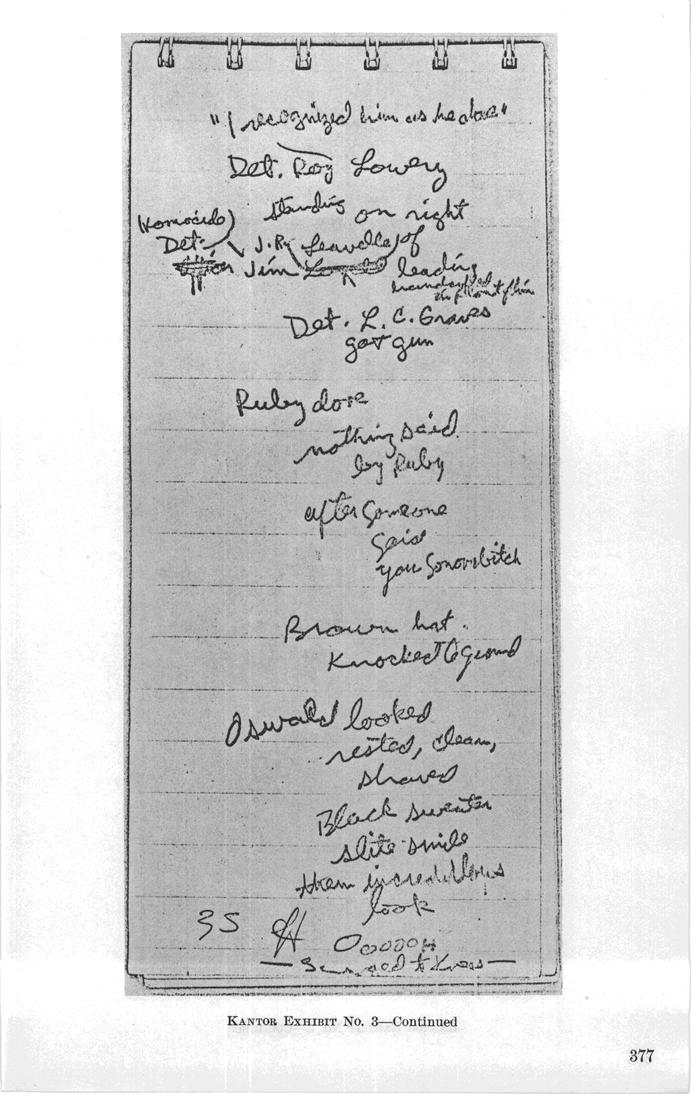 "I recognized him as he dove"
Det. Roy Lowery
standing on right
Homocide
Det. J.R. Leavelle of
Jim leading
handcuffed
in front of him
Det. L. C. Graves
got gun
Ruby dove
nothing said
by Ruby
after someone
said
you Sonovabitch
Brown hat.
Knocked to ground
Oswald looked
rested, clean,
shaved
Black sweater
slite smile
then incredulous
look
35
OooooH
to knees
KANTOR EXHIBIT No. 3—Continued
377